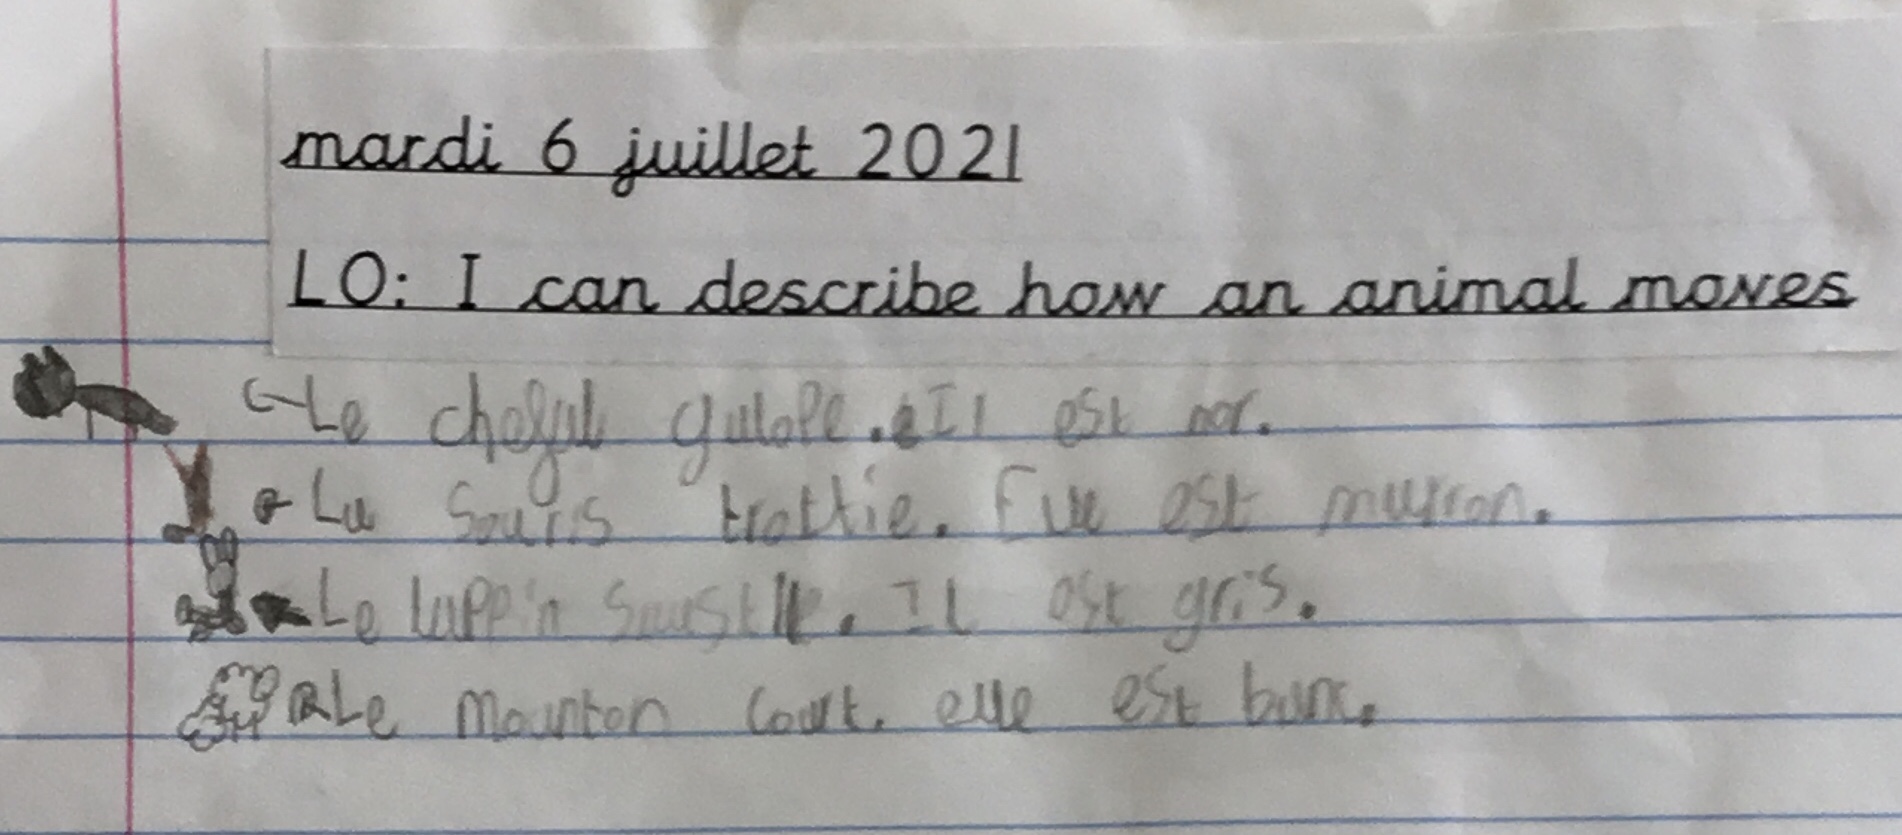 mardi 6 juillet 2021
LO: I can describe how an animal moves
Le chefal gallope. Il est nor.
La souris trottie. Elle est marron.
Le lappin saust. Il est gris.
Le mounton court. elle est banc.